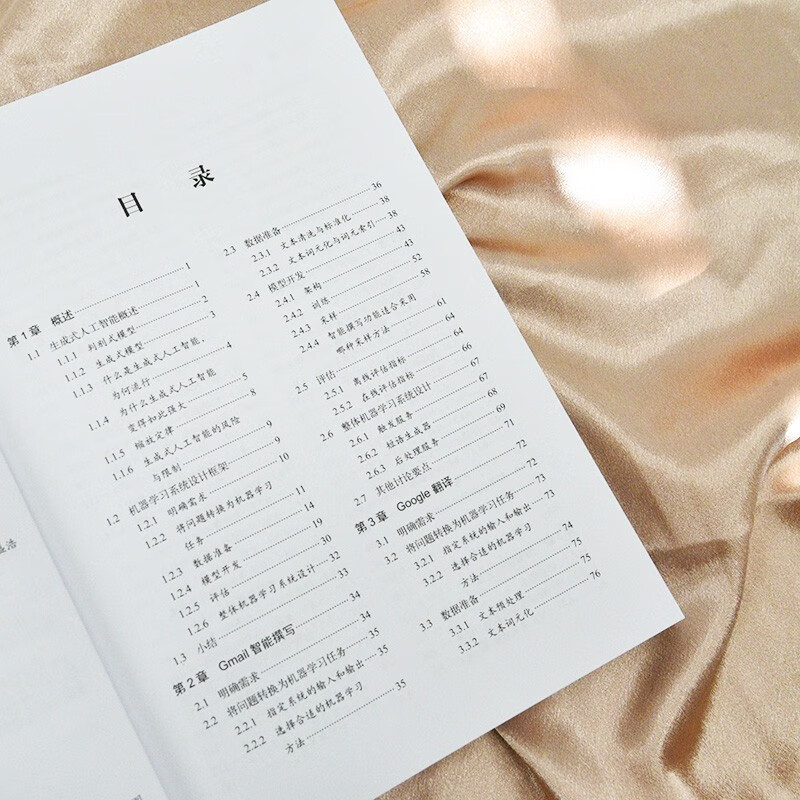 目 录
第1章 概述 1
1.1 生成式人工智能概述 1
1.1.1 判别式模型 2
1.1.2 生成式模型 3
1.1.3 什么是生成式人工智能，
为何流行 4
1.1.4 为什么生成式人工智能
变得如此强大 5
1.1.5 缩放定律 8
1.1.6 生成式人工智能的风险
与限制 9
1.2 机器学习系统设计框架 9
1.2.1 明确需求 10
1.2.2 将问题转换为机器学习
任务 11
1.2.3 数据准备 14
1.2.4 模型开发 19
1.2.5 评估 30
1.2.6 整体机器学习系统设计 32
1.3 小结 33
第2章 Gmail 智能撰写 34
2.1 明确需求 34
2.2 将问题转换为机器学习任务 35
2.2.1 指定系统的输入和输出 35
2.2.2 选择合适的机器学习
方法 35
2.3 数据准备 36
2.3.1 文本清洗与标准化 38
2.3.2 文本词元化与词元索引 38
2.4 模型开发 43
2.4.1 架构 43
2.4.2 训练 52
2.4.3 采样 58
2.4.4 智能撰写功能适合采用
哪种采样方法 61
2.5 评估 64
2.5.1 离线评估指标 64
2.5.2 在线评估指标 66
2.6 整体机器学习系统设计 67
2.6.1 触发服务 67
2.6.2 短语生成器 68
2.6.3 后处理服务 69
2.7 其他讨论要点 71
第3章 Google 翻译 72
3.1 明确需求 72
3.2 将问题转换为机器学习任务 73
3.2.1 指定系统的输入和输出 73
3.2.2 选择合适的机器学习
方法 74
3.3 数据准备 75
3.3.1 文本预处理 75
3.3.2 文本词元化 76